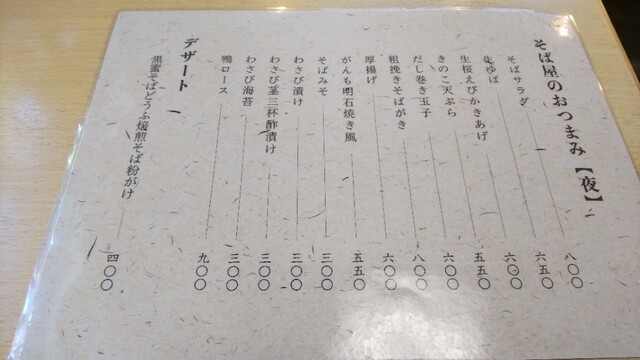 そば屋のおつまみ【夜】
そばサラダ 八〇〇
生ゆば 六五〇
生桜えびかきあげ 六〇〇
きのこ天ぷら 五五〇
だし巻き玉子 六〇〇
粗挽きそばがき 八〇〇
厚揚げ 六〇〇
がんも明石焼き風 五五〇
そばみそ 三〇〇
わさび漬け 三〇〇
わさび茎三杯酢漬け 三〇〇
わさび海苔 三〇〇
鴨ロース 九〇〇
デザート
黒蜜そばどうふ焙煎そば粉がけ 四〇〇